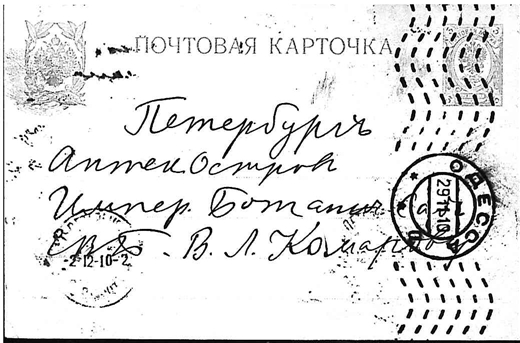 ПОЧТОВАЯ КАРТОЧКА
Петербургъ
Аптек. Остров
Импер. Ботанич. Сад
Е. В. Б. В. Л. Комарову
ОДЕССА
29.11.10
-2-12-10-2